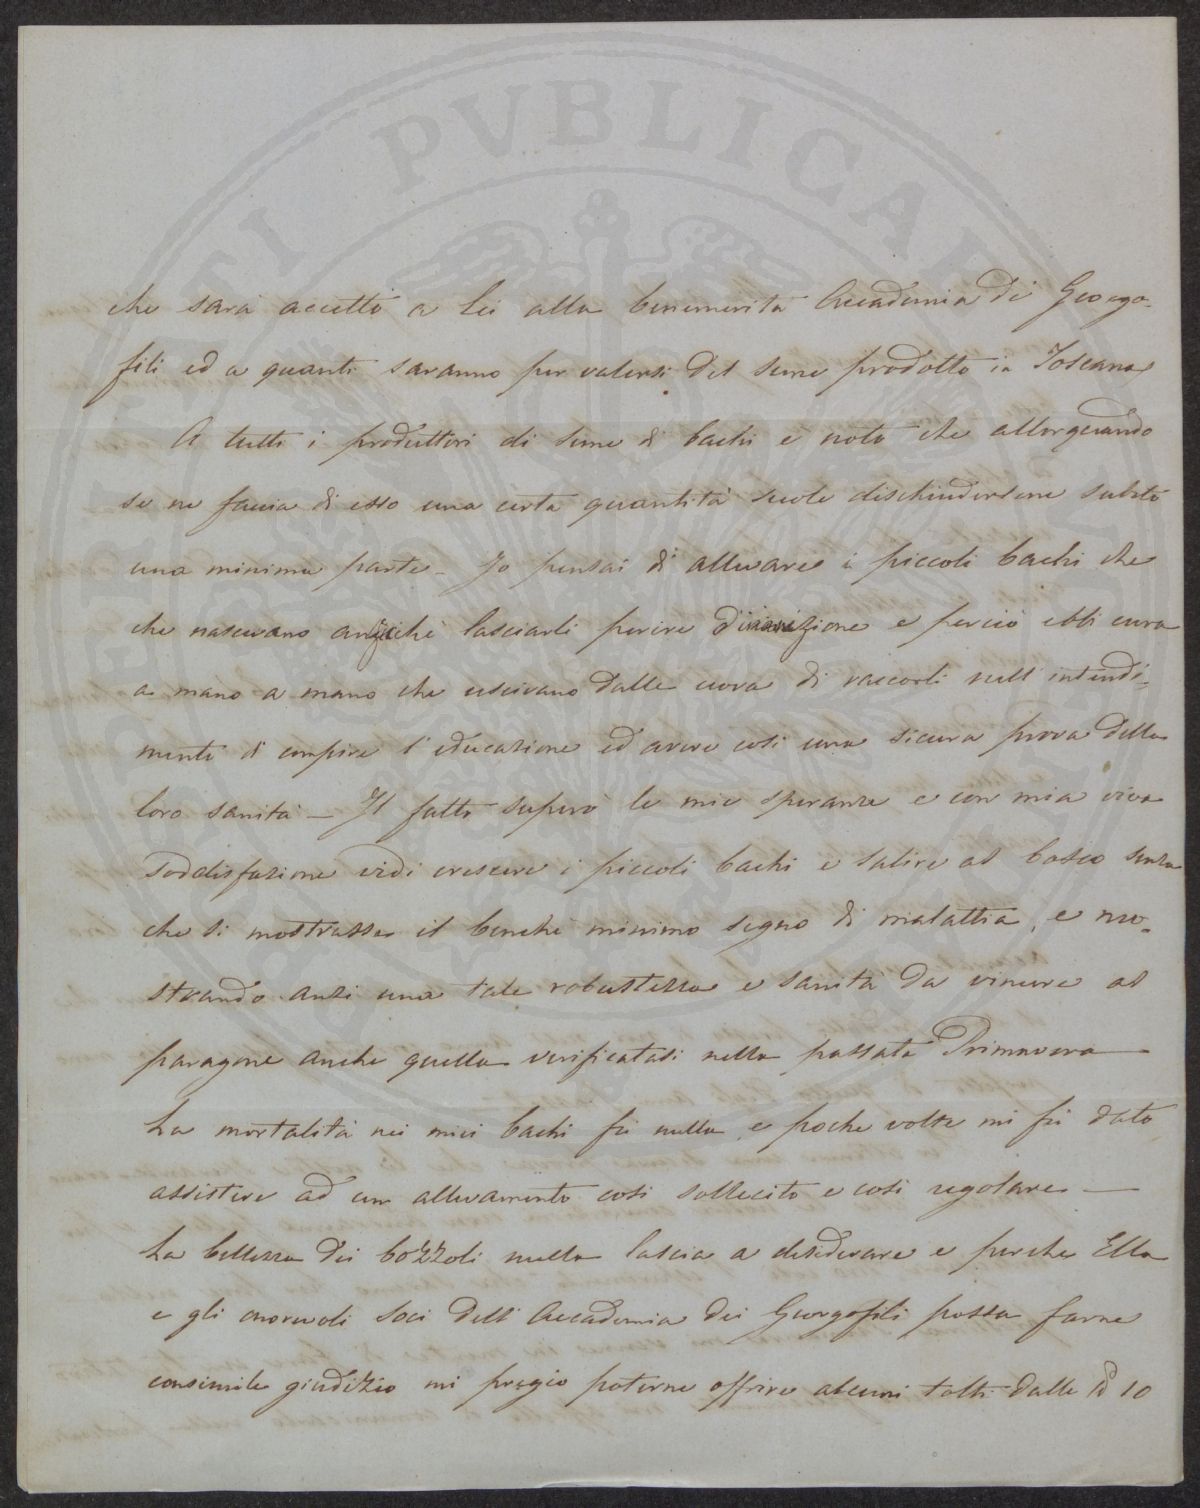 PVBLICAE
che sarà accetto a Lei alla benemerita Accademia di Georgo-
fili ed a quanti saranno per valersi del seme prodotto in Toscana
A tutti i produttori di seme di bachi è noto che allorquando
se ne faccia di esso una certa quantità suole dischiudersene subito
una minima parte - Io pensai di allevare i piccoli bachi che
che nascevano anziché lasciarli perire d'inanizione e perciò ebbi cura
a mano a mano che uscivano dalle uova di raccorli nell'intendi-
mento di compire l'educazione ed avere così una sicura prova della
loro sanità - Il fatto superò le mie speranze e con mia viva
soddisfazione vidi crescere i piccoli bachi e salire al bosco senza
che si mostrasse il benché minimo segno di malattia, e mo-
strando anzi una tale robustezza e sanità da vincere al
paragone anche quella verificatasi nella passata Primavera -
La mortalità nei miei bachi fu nulla e poche volte mi fu dato
assistere ad un allevamento così sollecito e così regolare -
La bellezza dei bozzoli nulla lascia a desiderare e perché Ella
e gli onorevoli Soci dell'Accademia dei Georgofili possa farne
consimile giudizio mi pregio poterne offrire alcuni tolti dalle 10